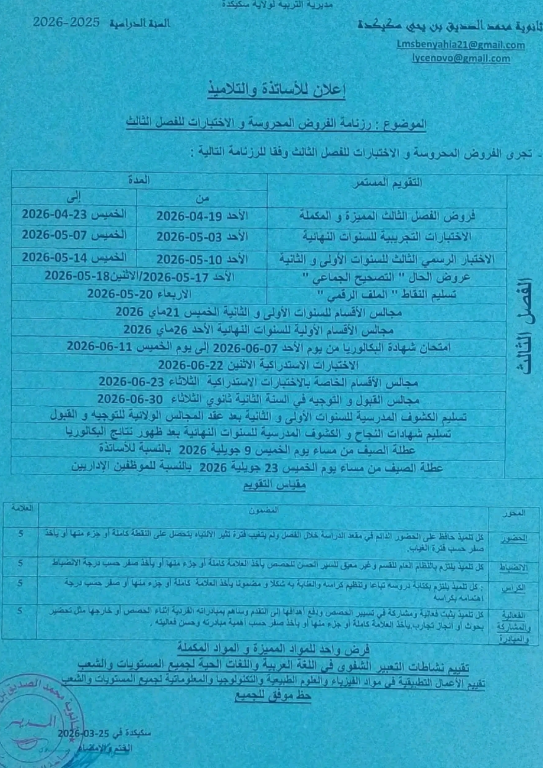 مديرية التربية لولاية سكيكدة
ثانوية محمد الصديق بن يحي سكيكدة
السنة الدراسية 2025-2026
Lmsbenyahia21@gmail.com
lycenovo@gmail.com
إعلان للأساتذة والتلاميذ
الموضوع : رزنامة الفروض المحروسة و الاختبارات للفصل الثالث
- تجرى الفروض المحروسة و الاختبارات للفصل الثالث وفقا للرزنامة التالية :
الفصل الثالث
التقويم المستمر المدة
من إلى
فروض الفصل الثالث المميزة و المكملة الأحد 19-04-2026 الخميس 23-04-2026
الاختبارات التجريبية للسنوات النهائية الأحد 03-05-2026 الخميس 07-05-2026
الاختبار الرسمي الثالث للسنوات الأولى و الثانية الأحد 10-05-2026 الخميس 14-05-2026
عروض الحال " التصحيح الجماعي " الأحد 17-05-2026/الاثنين18-05-2026
تسليم النقاط " الملف الرقمي " الاربعاء 20-05-2026
مجالس الأقسام للسنوات الأولى و الثانية الخميس 21ماي 2026
مجالس الأقسام الأولية للسنوات النهائية الأحد 26ماي 2026
امتحان شهادة البكالوريا من يوم الأحد 07-06-2026 إلى يوم الخميس 11-06-2026
الاختبارات الاستدراكية الاثنين 22-06-2026
مجالس الأقسام الخاصة بالاختبارات الاستدراكية الثلاثاء 23-06-2026
مجالس القبول و التوجيه في السنة الثانية ثانوي الثلاثاء 30-06-2026
تسليم الكشوف المدرسية للسنوات الأولى و الثانية بعد عقد المجالس الولائية للتوجيه و القبول
تسليم شهادات النجاح و الكشوف المدرسية للسنوات النهائية بعد ظهور نتائج البكالوريا
عطلة الصيف من مساء يوم الخميس 9 جويلية 2026 بالنسبة للأساتذة
عطلة الصيف من مساء يوم الخميس 23 جويلية 2026 بالنسبة للموظفين الإداريين
مقياس التقويم
المحور المضمون العلامة
الحضور كل تلميذ حافظ على الحضور الدائم في مقعد الدراسة خلال الفصل ولم يتغيب فترة تثير الانتباه يتحصل على النقطة كاملة أو جزء منها أو يأخذ 5
صفر حسب فترة الغياب.
الانضباط كل تلميذ يلتزم بالنظام العام للقسم وغير معيق للسير الحسن للحصص يأخذ العلامة كاملة أو جزء منها أو يأخذ صفر حسب درجة الانضباط 5
الكراس . كل تلميذ يلتزم بكتابة دروسه تباعا وتنظيم كراسه والعناية به شكلا و مضمونا يأخذ العلامة كاملة أو جزء منها أو صفر حسب درجة 5
اهتمامه بكراسه
الفعالية والمشاركة والمبادرة كل تلميذ يثبت فعالية ومشاركة في تسيير الحصص ودفع أهدافها إلى التقدم وساهم بمبادراته الفردية اثناء الحصص أو خارجها مثل تحضير 5
بحوث أو انجاز تجارب.يأخذ العلامة كاملة أو جزء منها أو يأخذ صفر حسب أهمية مبادرته وحسن فعاليته .
فرض واحد للمواد المميزة و المواد المكملة
تقييم نشاطات التعبير الشفوي في اللغة العربية واللغات الحية لجميع المستويات والشعب
تقييم الأعمال التطبيقية في مواد الفيزياء والعلوم الطبيعية والتكنولوجيا والمعلوماتية لجميع المستويات والشعب
حظ موفق للجميع
سكيكدة في 25-03-2026
الختم والامضاء
المدير